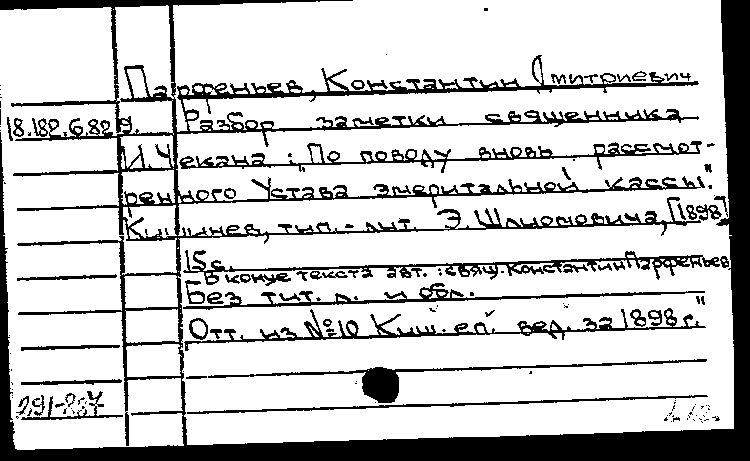 Парфеньев, Константин Дмитриевич
18.182.6.82 9. Разбор заметки священника
И. Чекана: "По поводу вновь рассмот-
ренного Устава эмеритальной кассы".
Кишинев, тип.-лит. Э. Шлиомовича, [1898]
15 с.
В конце текста авт.: свящ. Константин Парфеньев
Без тит. л. и обл.
"Отт. из №10 Киш. еп. вед. за 1898 г."
291-887